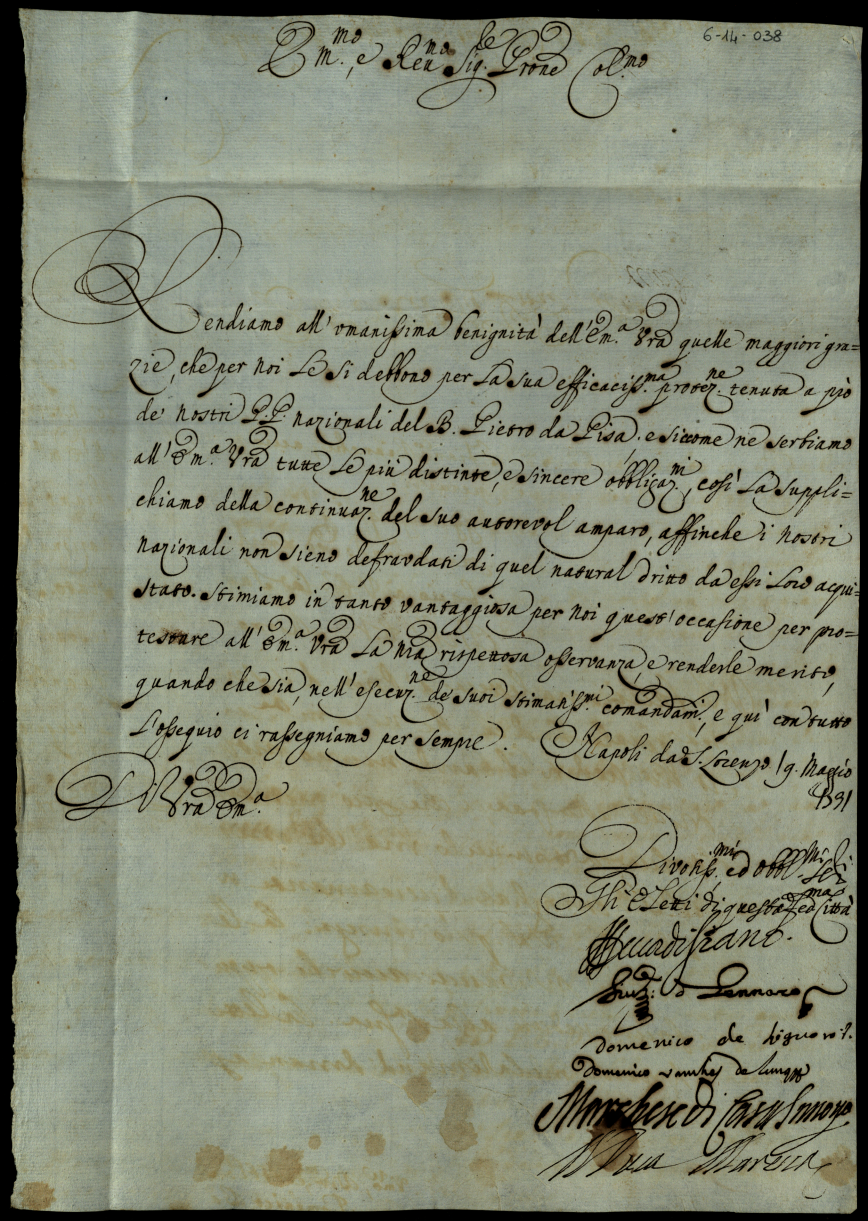 6-14-038
Em.mo, e Reu.mo Sig.re Prone Col.mo
Rendiamo all' vmanissima benignità dell' Em.a Vrã quelle maggiori gra=
zie, che per noi Le si debbono per La sua efficaciss.ma protez.ne tenuta a piò
de' nostri P.P. nazionali del B. Pietro da Pisa. e siccome ne serbiamo
all' Em.a Vrã tutte Le più distinte, e sincere obbligaz.ni, così La suppli=
chiamo della continuaz.ne del suo autorevol amparo, affinche i nostri
nazionali non sieno defraudati di quel natural dritto da essi Loro acqui=
stato. Stimiamo in tanto vantaggiosa per noi quest' occasione per pro=
testare all' Em.a Vrã La nrã rispettosa osservanza, e renderle merito,
quando che sia, nell' esecuz.ne de' suoi stimatiss.mi comandam.i, e quì con tutto
L'ossequio ci rassegniamo per sempre. Napoli da S. Lorenzo 19. Maggio
Di Vrã Em.a
Divotiss.mi ed obbl.mi
Gli Eletti di questa Fed.ma Città
di Gennaro
Domenico de Liguoro
Domenico
Marchese di
Duca Maresca